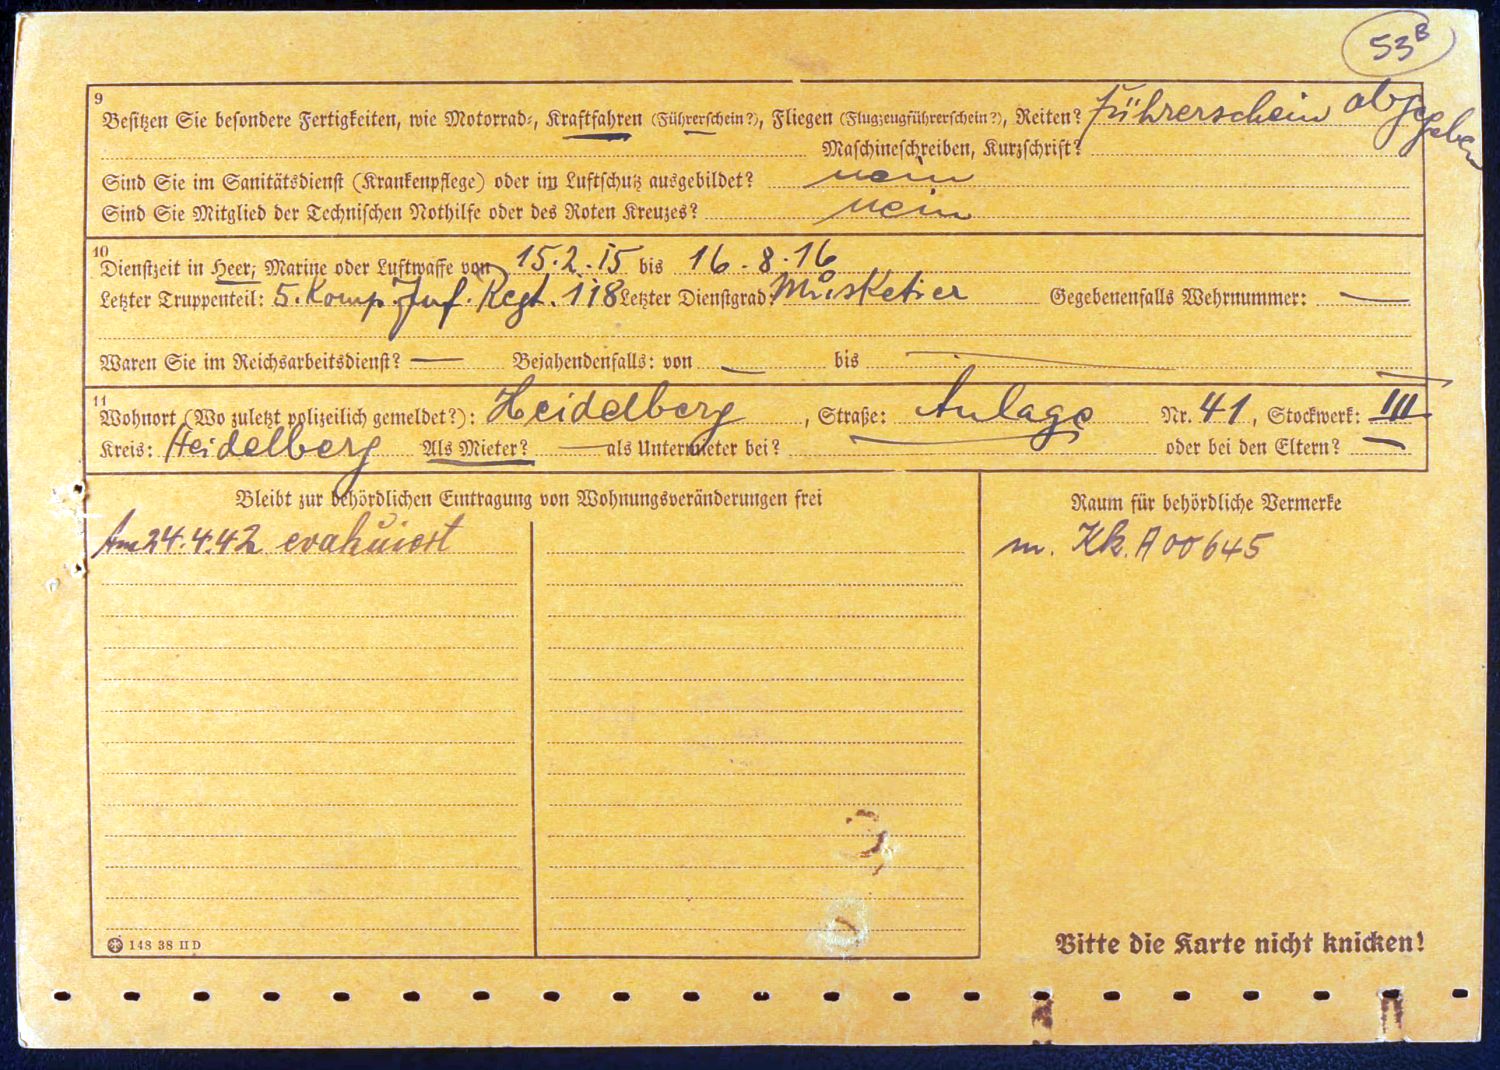 53B
9
Besitzen Sie besondere Fertigkeiten, wie Motorrad-, Kraftfahren (Führerschein?), Fliegen (Flugzeugführerschein?), Reiten? Führerschein abgegeben
Maschineschreiben, Kurzschrift?
Sind Sie im Sanitätsdienst (Krankenpflege) oder im Luftschutz ausgebildet? nein
Sind Sie Mitglied der Technischen Nothilfe oder des Roten Kreuzes? nein
10
Dienstzeit in Heer, Marine oder Luftwaffe von 15.2.15 bis 16.8.16
Letzter Truppenteil: 5. Komp. Inf. Regt. 118 Letzter Dienstgrad: Musketier Gegebenenfalls Wehrnummer: —
Waren Sie im Reichsarbeitsdienst? — Bejahendenfalls: von — bis —
11
Wohnort (Wo zuletzt polizeilich gemeldet?): Heidelberg, Straße: Anlage Nr. 41, Stockwerk: III
Kreis: Heidelberg Als Mieter? — als Untermieter bei? oder bei den Eltern? —
Bleibt zur behördlichen Eintragung von Wohnungsveränderungen frei
Am 24.4.42 evakuiert
Raum für behördliche Vermerke
m. Kk. A00645
148 38 II D
Bitte die Karte nicht knicken!